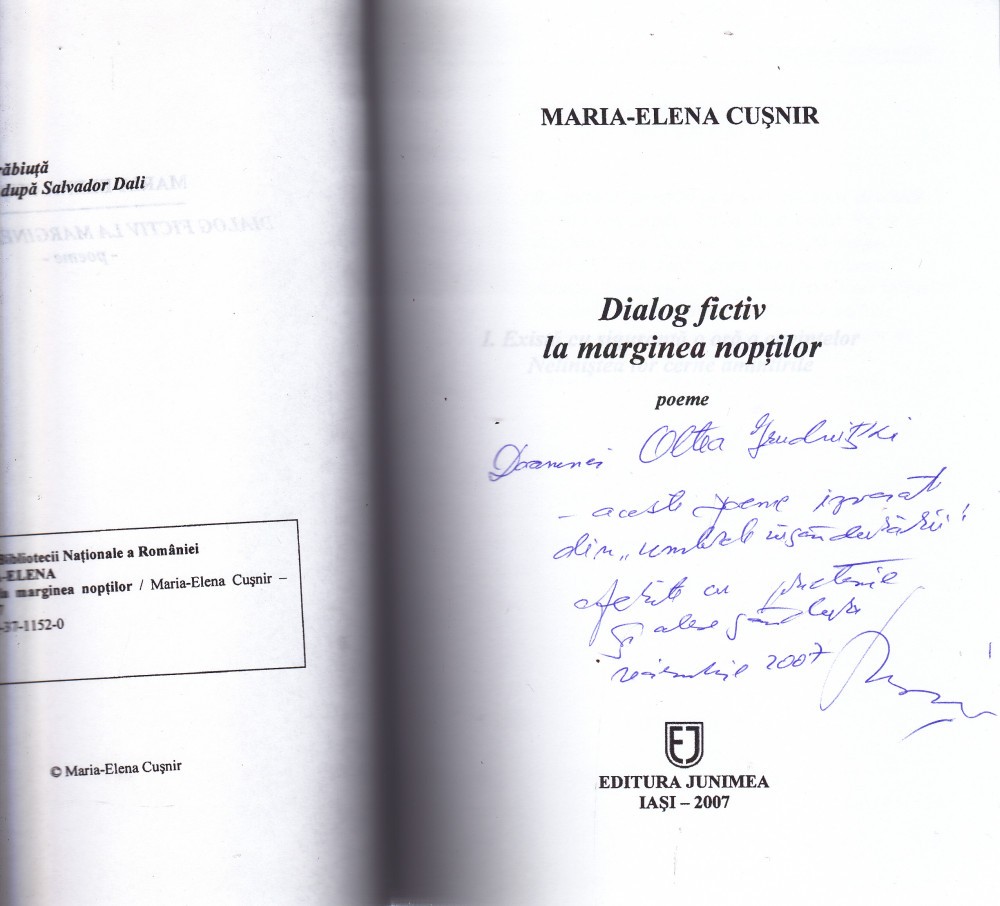 răbiuţă
după Salvador Dali
Bibliotecii Naţionale a României
-ELENA
la marginea nopţilor / Maria-Elena Cuşnir –
7
-37-1152-0
© Maria-Elena Cuşnir
MARIA-ELENA CUŞNIR
Dialog fictiv
la marginea nopţilor
poeme
Doamnei Oltea
– aceste poeme izvorate
din „umbrele îngândurării"!
Oferite cu prietenie
şi alese gânduri
noiembrie 2007
EJ
EDITURA JUNIMEA
IAŞI – 2007